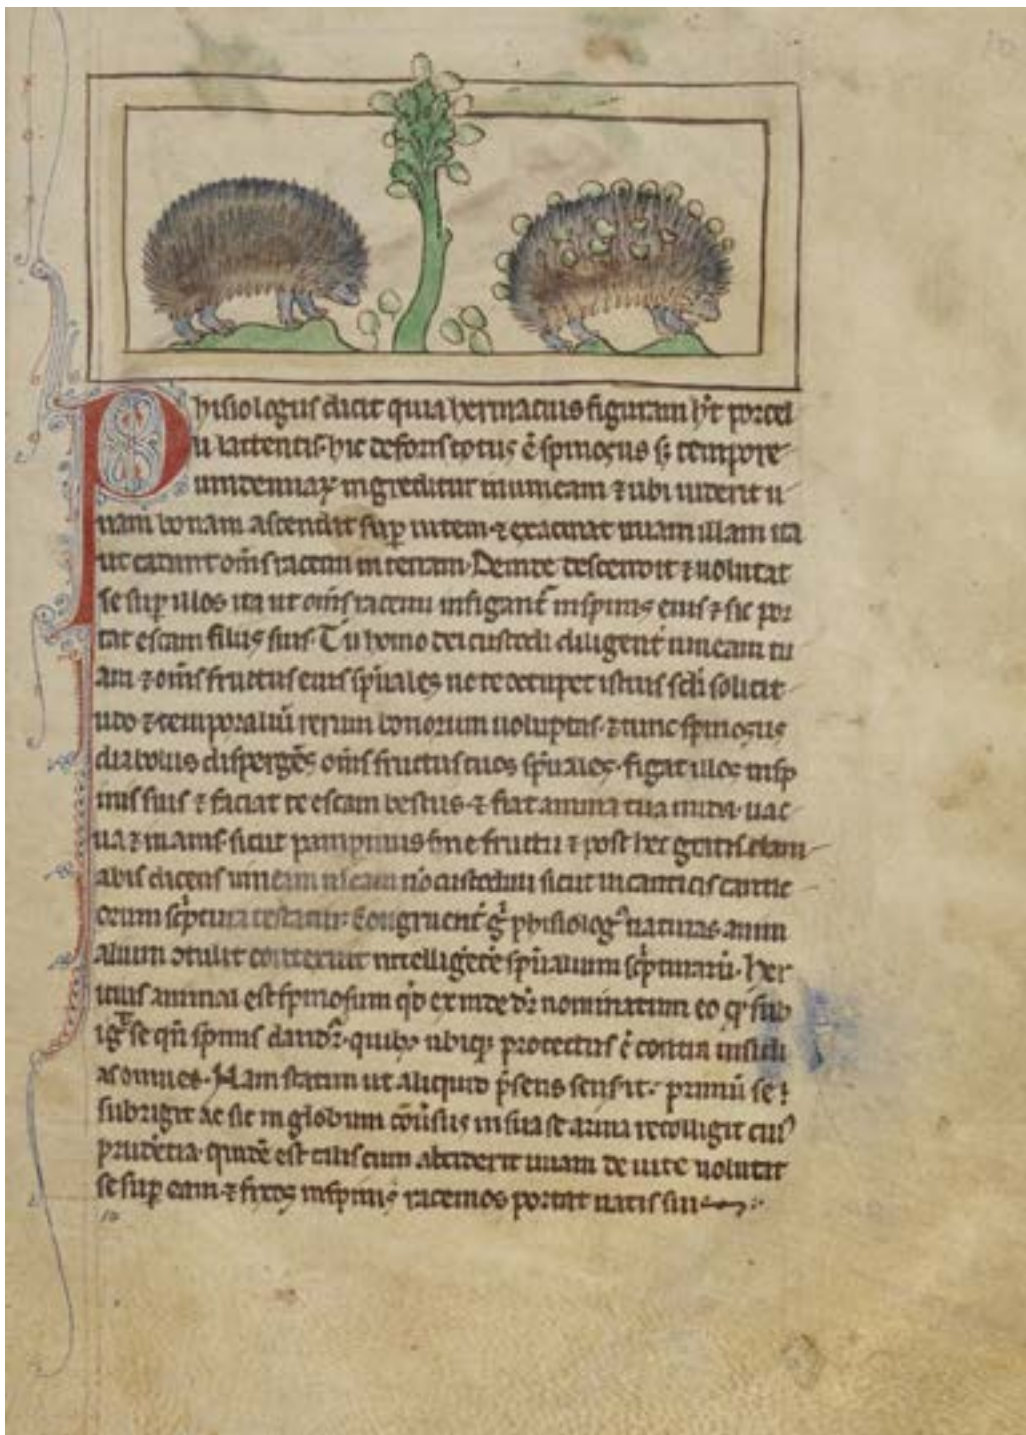 10
Phisiologus dicit quia herinacius figuram hꝫt porcel
li lactentis. hic deforis totus ē spinosus. sꝫ tempore
uindemiaꝝ ingreditur in uineam ⁊ ubi uiderit u
uam bonam ascendit suꝑ uitem. ⁊ exacinat uuam illam ita
ut cadant om̄s racemi in terram. Deinde descendit ⁊ uolutat
se suꝑ illos ita ut om̄s racemi infigant᷑ in spinis eius ⁊ sic por
tat escam filiis suis. Tu homo dei custodi diligent᷑ uineam tu
am ⁊ om̄s fructus eius sp̄uales ne te occupet istius scłi solicit
udo ⁊ temporaliū rerum bonorum uoluptas. ⁊ tunc spinosus
diabolus dispergēs om̄s fructus tuos sp̄uales. figat illos in spi
nis suis ⁊ faciat te escam bestiis. ⁊ fiat anima tua nuda. uac
ua ⁊ inanis. sicut pampinus sine fructu ⁊ post hec gratis clam
abis dicens uineam meam nō custodiui sicut in canticis cantic
orum sc̓ptura testatur. Congruent᷑ g̊ phisiologꝰ naturas anim
alium ɔtulit ⁊ contexuit intelligētie sp̄ualium sc̓pturarū. Her
icius animal est spinosum qd̓ exinde dr̄ nominatum eo qꝫ sub
ig̊ se qn̄ spinis claudr̄. quibꝫ ubiqꝫ protectus ē contra insidi
as omnes. Nam statim ut aliquid p̄sens sensit. primū se
subrigit ac sic in globum cōu̓sus in sua se arma recolligit cuiꝰ
prudētia. quidē est talis cum absciderit uuam de uite uolutat
se suꝑ eam ⁊ fixos in spinis racemos portat natis suis
10